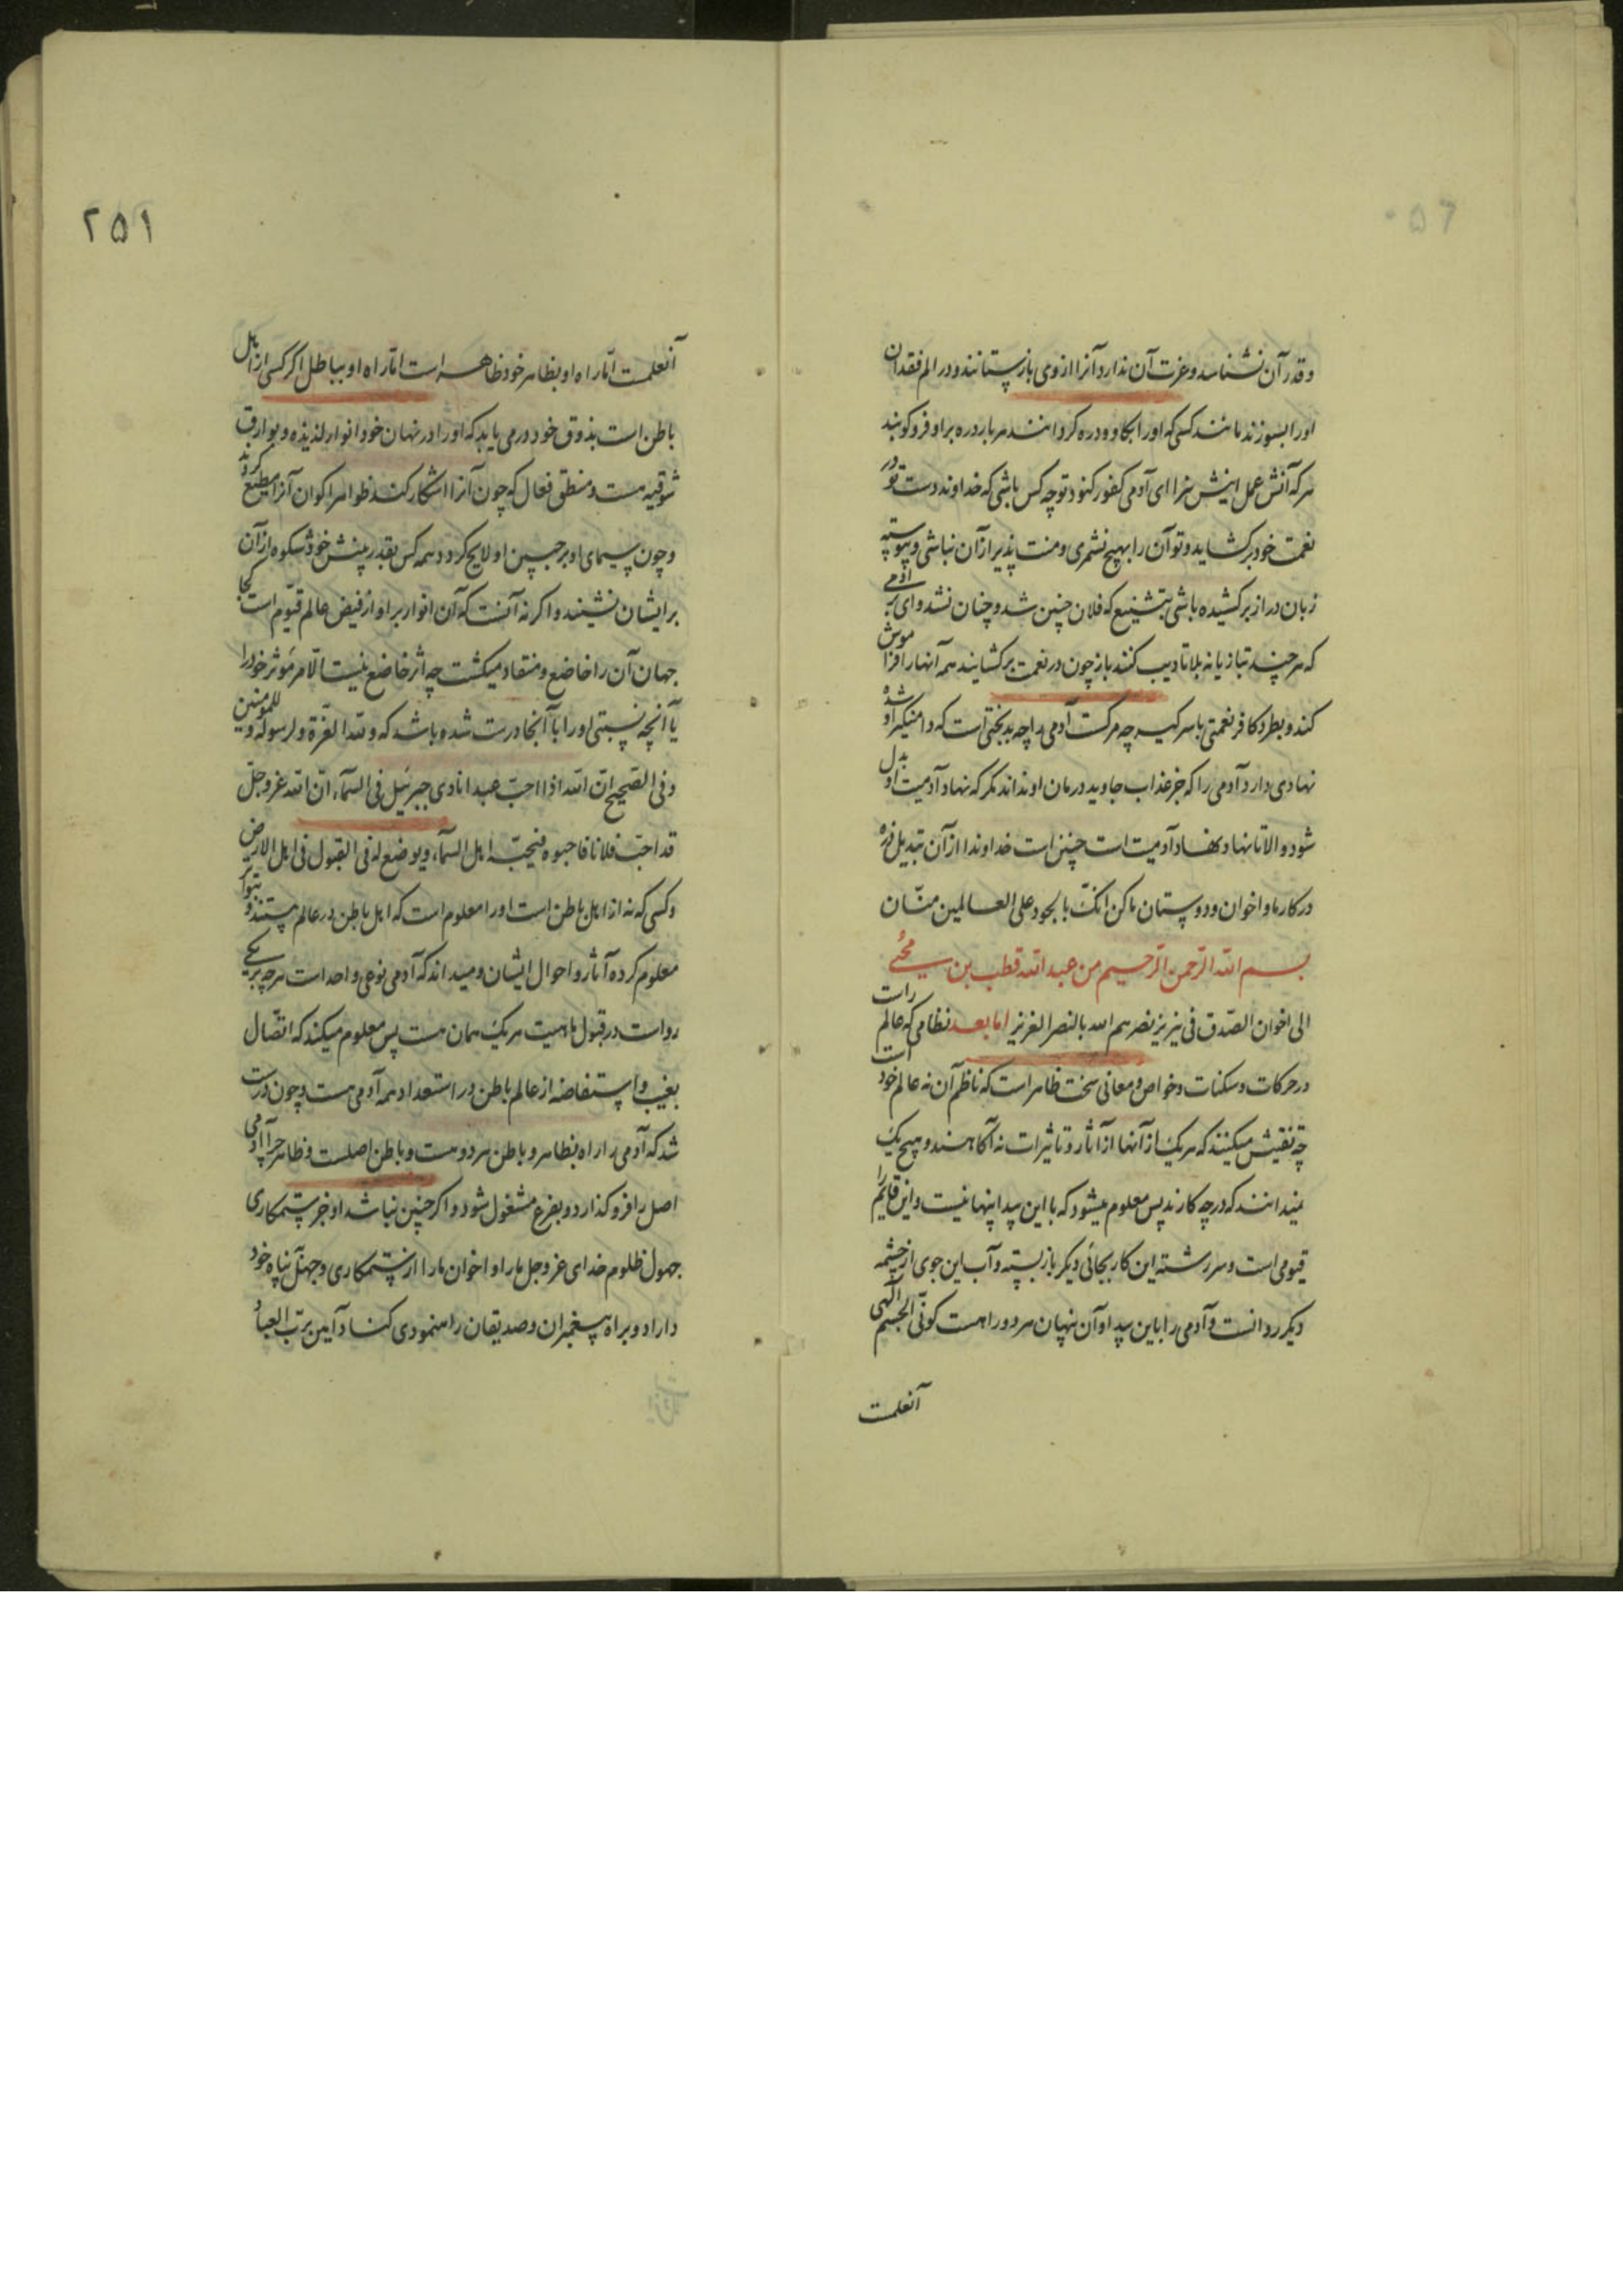 وقدر آن نشناسد و عزت آن ندارد آنرا از وی باز ستانند و در الم فقدان
او را بسوزند مانند کسی که او را بکاو و دره کردانند هر بار دره بر او فرو کوبند
هر که آتش عمل اینش سزا ای آدمی کفور کنود تو چه کس باشی که خداوند دست تو در
نعمت خود برکشاید و تو آن را بهیچ نشمری و منت پذیر از آن نباشی و پیوسته
زبان دراز برکشیده باشی بتشنیع که فلان چنین شد و چنان نشد وای بر آدمی
که هر چند بتازیانه بلا تادیب کنند باز چون در نعمت برکشایند همه آنها را فراموش
کند و بطر و کافر نعمتی با سر کیرد چه مرکست آدمی را چه بدبختی است که دامنگیر او شده
نهادی دارد آدمی را که جز عذاب جاوید درمان او نداند مکر که نهاد آدمیت او بدل
شود و الا تا نهاد نهاد آدمیت است چنین است خداوندا از آن تبدیل ذره
در کار ما و اخوان و دوستان ما کن انک بالجود علی العالمین منّان
بسم الله الرحمن الرحیم من عبد الله قطب بن محیی
الی اخوان الصدق فی نیریز نصرهم الله بالنصر العزیز اما بعد نظامی که عالم راست
در حرکات و سکنات و خواص و معانی سخت ظاهر است که ناظم آن نه عالم خود است
چه تفتیش میکنند که هر یک از آنها از آثار و تاثیرات نه آکاهند و هیچ یک
نمیدانند که در چه کارند پس معلوم میشود که با این پیدا پنهانیست و این قایم را
قیومی است و سر رشته این کار بجائی دیکر باز بسته و آب این جوی از چشمه
دیکر روانست و آدمی را باین پیدا و آن پنهان هر دو راهست کونی الجسم الهی
آنعلمت
۲۵۱
آنعلمت اما راه او بظاهر خود ظاهر است اما راه او بباطل اکر کسی از اهل
باطن است بذوق خود در می یابد که او را در نهان خود انوار لذیذه و بوارق
شوقیه هست و منطقی فعال که چون آنرا اشکار کند ظواهر اکوان آنرا مطیع کردند
و چون سیمای او بر جبین او لایح کردد همه کس بقدر بینش خود شکوه از آن
بر ایشان نشیند و اکر نه آنست که آن انوار بر او از فیض عالم قیّوم است کجا
جهان آن را خاضع و منقاد میکشت چه اثر خاضع نیست الّا مر مؤثر خود را
یا آنچه نسبتی او را با آنجا درست شده باشد که و لله العزة و لرسوله و للمؤمنین
و فی الصحیح ان الله اذا احبّ عبدا نادی جبرئیل فی السمآء ان الله عز و جل
قد احبّ فلانا فاحبوه فیحبّه اهل السمآء و یوضع له فی القبول فی اهل الارض
و کسی که نه از اهل باطن است او را معلوم است که اهل باطن در عالم هستند و بتواتر
معلوم کرده آثار و احوال ایشان و میداند که آدمی نوعی واحد است هر چه بر یکی
رواست در قبول ماهیت هر یک همان هست پس معلوم میکند که اتصال
بغیب و استفاضه از عالم باطن در استعداد همه آدمی هست و چون درست
شد که آدمی را راه بظاهر و باطن هر دو هست و باطن اصلست و ظاهر چرا آدمی
اصل را فرو کذارد و بفرع مشغول شود و اکر چنین نباشد او جز ستمکاری
جهول ظلوم خدای عز و جل ما را و اخوان ما را از ستمکاری و جهل پناه خود
دارد و براه پیغمبران و صدیقان راهنمودی کناد آمین برب العباد